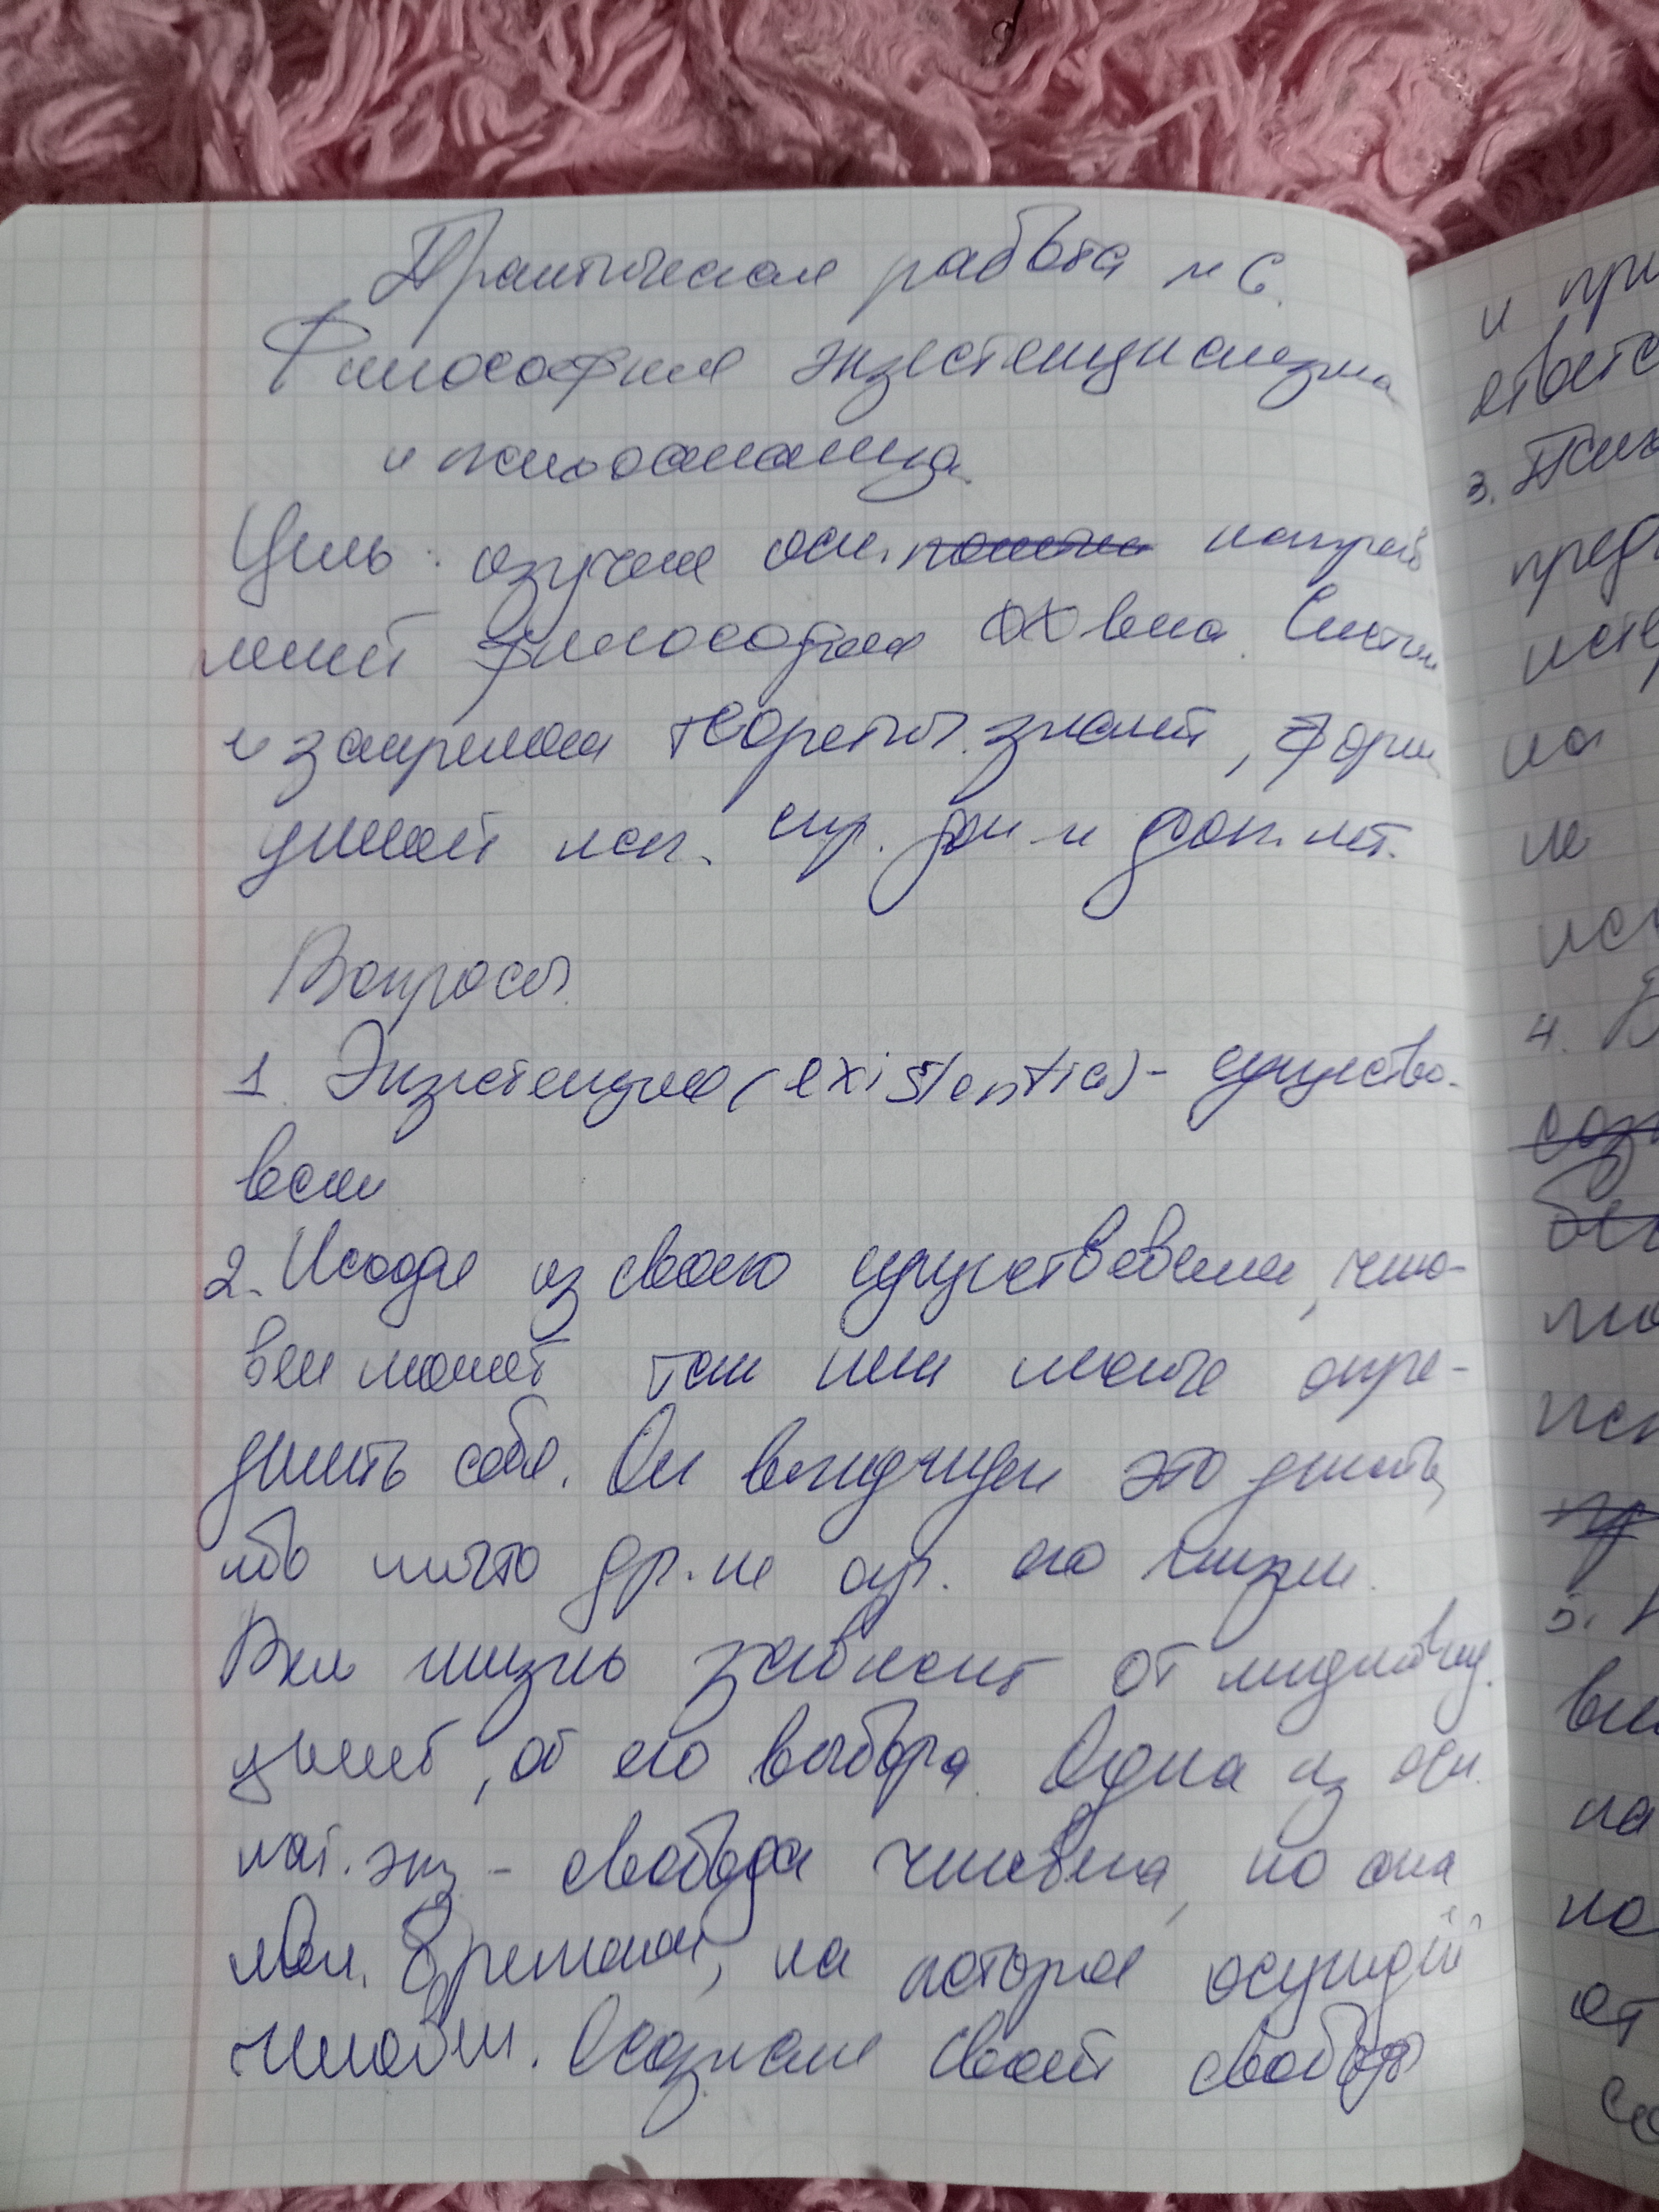 Практическая работа № 6.
Философия экзистенциализма
и психоанализа.
Цель: изучение осн. направ
лений философии XX века. Систем
и закрепление теоретич. знаний, форм
умений исп. спр. док и доп. лит.
Вопросы.
1. Экзистенция (existentia) - существо-
вание
2. Исходя из своего существования, чело-
век может так или иначе опре-
делить себя. Он вынужден это делать,
ибо ничто др. не опр. его жизни.
Вся жизнь зависит от индивид.
решений, от его выбора. Одна из осн.
кат. экз - свобода человека, но она
явл. бременем, на которое осуждён
человек. Осознание своей свободы
и при
ответс
3. Псих
пред
исте
на
не
исп
4. В
соз
бес
исп
5.
на
но
от
со